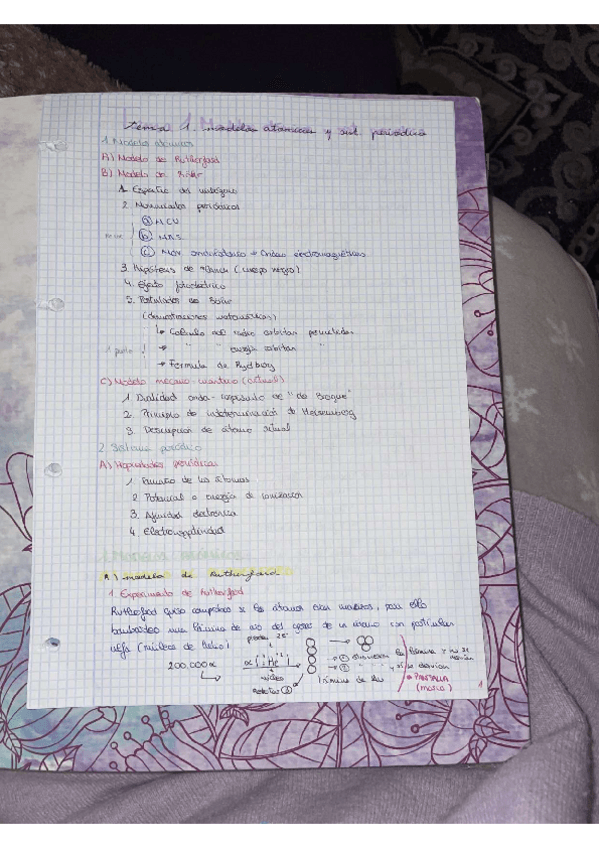 tema 1. modelos atómicos y sist. periódico
1. Modelos atómicos
A) Modelo de Rutherford
B) Modelo de Bohr
1. Espectro del hidrógeno
2. Movimientos periódicos
a) MCU
b) M.A.S
c) Mov. ondulatorio → Ondas electromagnéticas
3. Hipótesis de Planck (cuerpo negro)
4. Efecto fotoeléctrico
5. Postulados de Bohr
(demostraciones matemáticas)
→ Calculo del radio orbitas permitidas
1 punto → " energía orbitas "
→ Formula de Rydberg
C) Modelo mecano-cuantico (actual)
1. Dualidad onda-corpúsculo de "de Broglie"
2. Principio de indeterminación de Heisemberg
3. Descripcion de átomo actual
2. Sistema periódico
A) Propiedades periódicas
1. Tamaño de los átomos
2. Potencial o energía de ionización
3. Afinidad electrónica
4. Electronegatividad
A) modelo de Rutherford
1. Experimento de Rutherford
Rutherford quiso comprobar si los átomos eran macizos, para ello
bombardeó una lámina de oro del grosor de un átomo con partículas
alfa (núcleos de helio)
200.000 α
lámina de Au
PANTALLA
(marca)
1